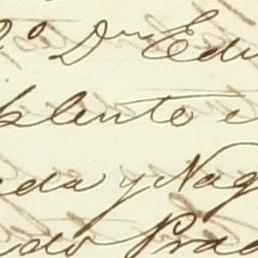 Dn Edu
plento e
da y Nag
do Prad